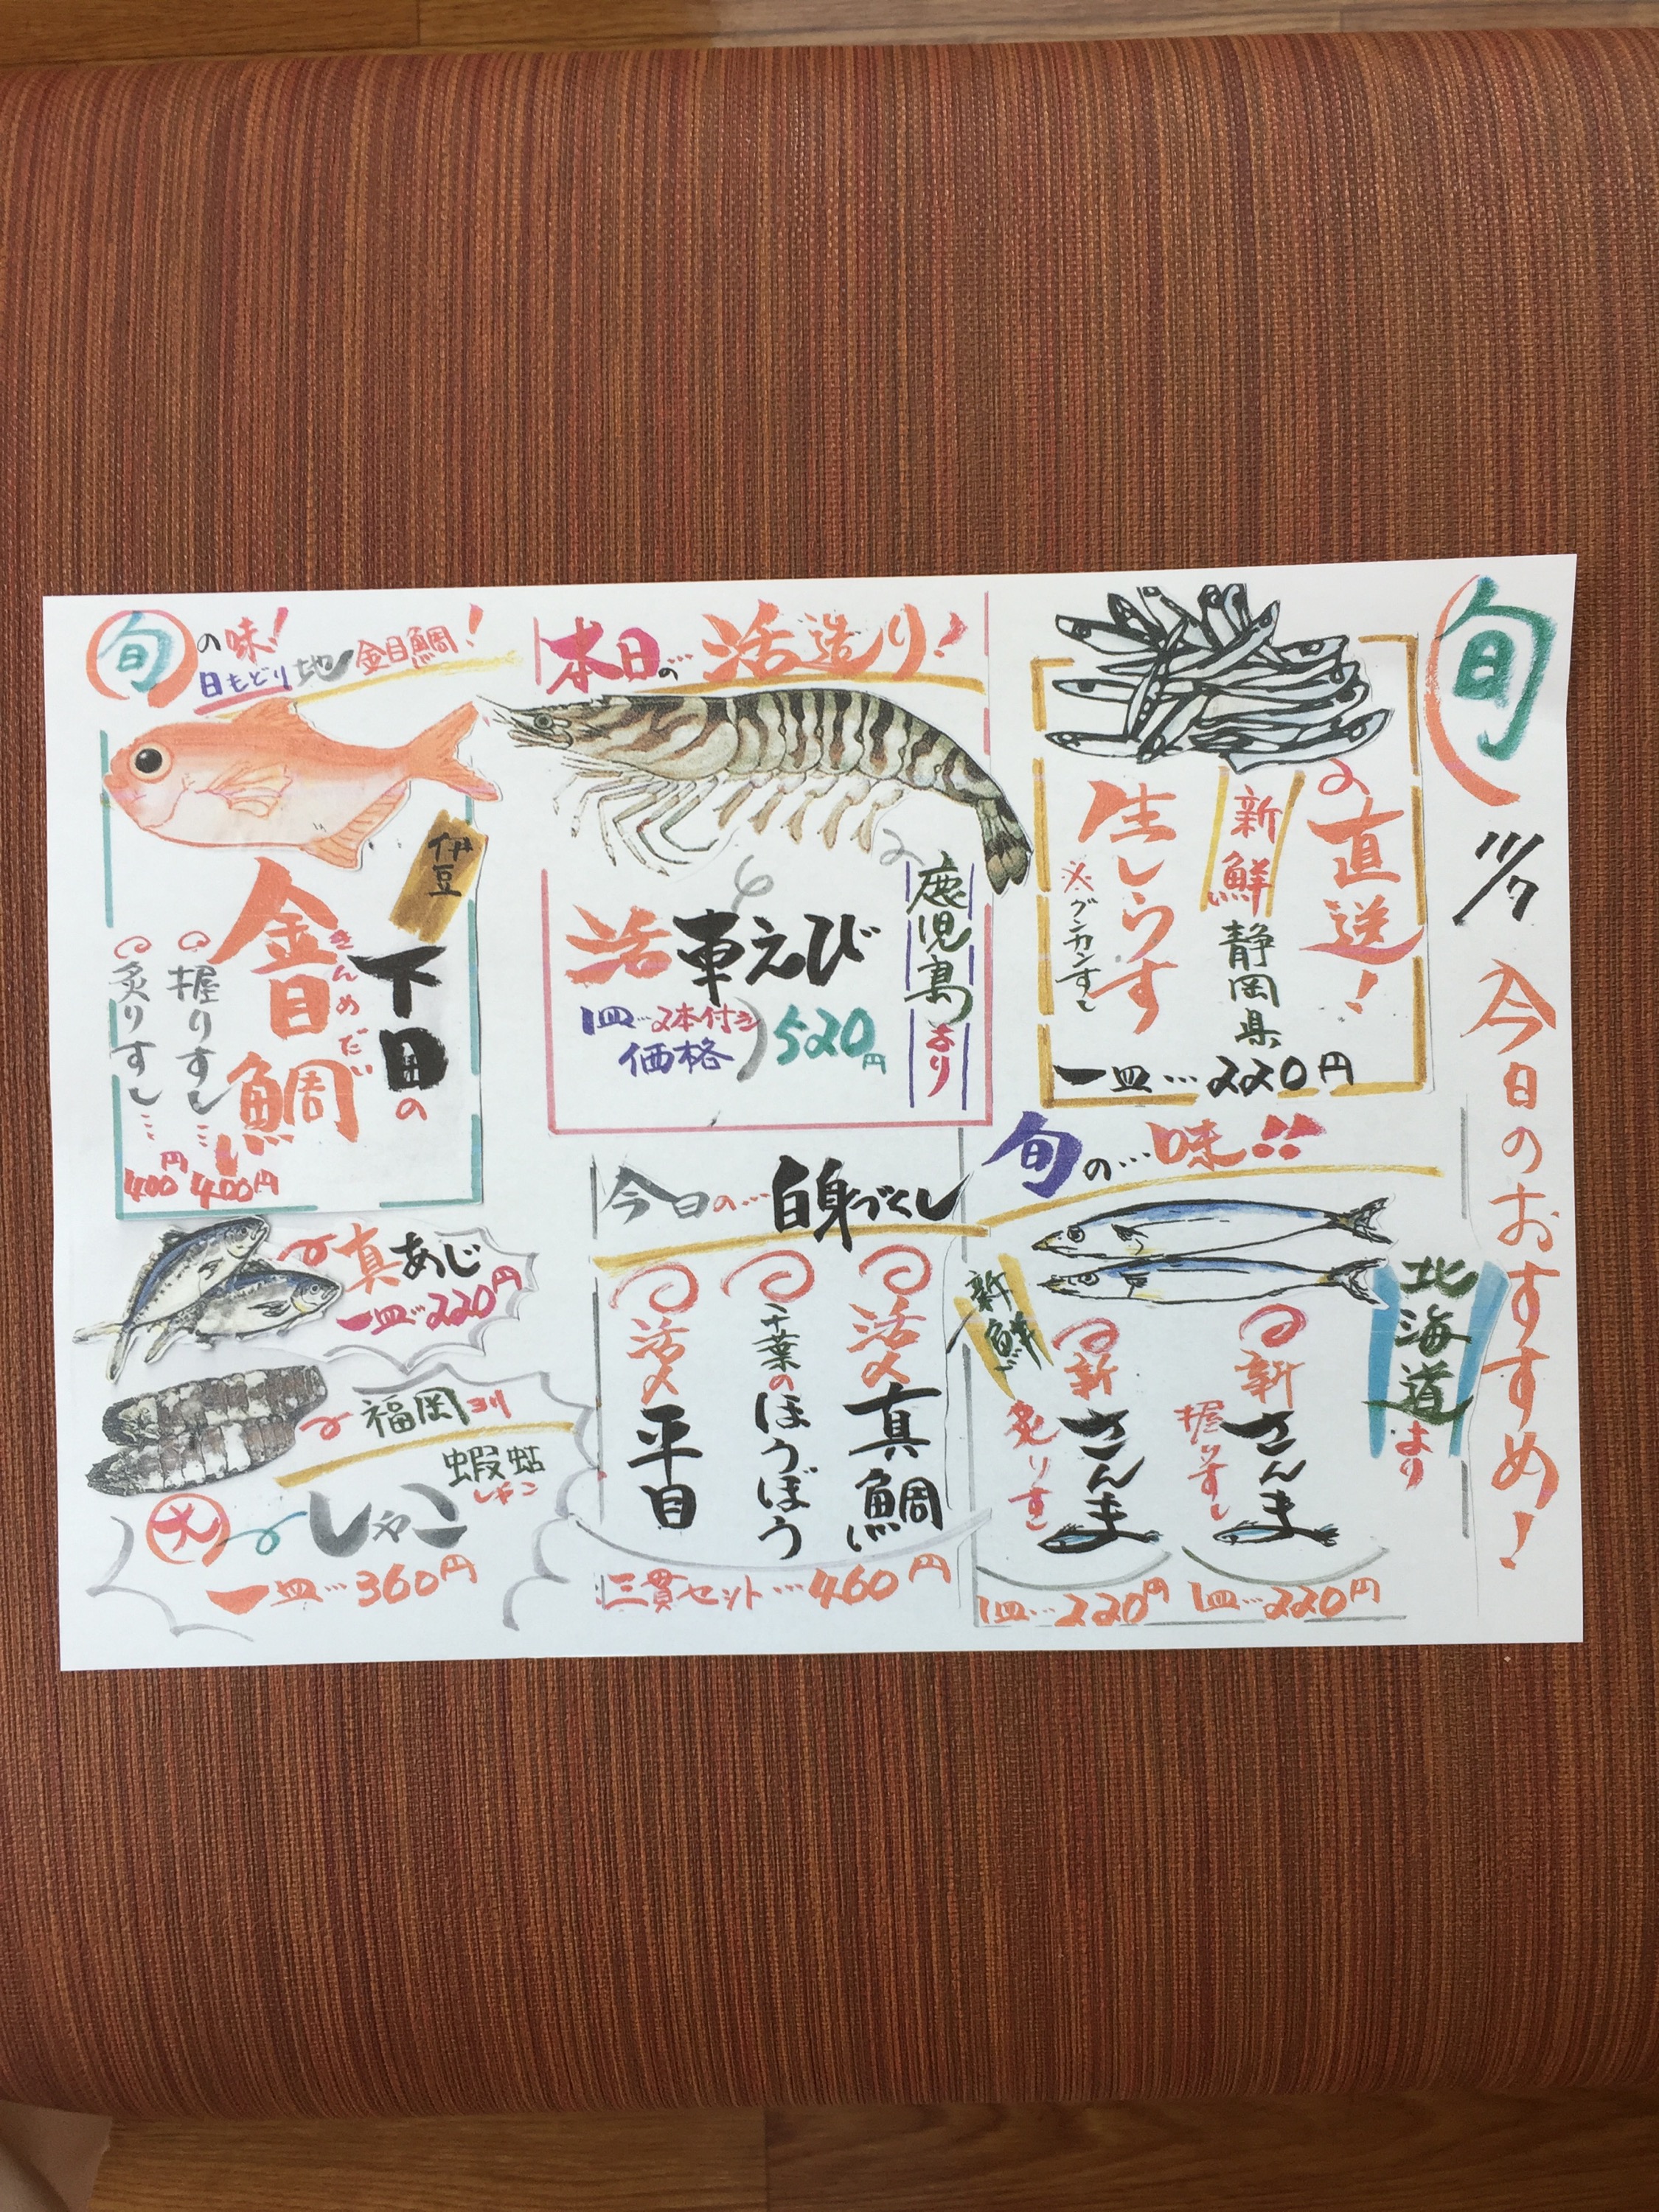 旬
11/7
今日のおすすめ!
直送!
新鮮
静岡県
生しらす
※グンカンすし
一皿…220円
本日の…活造り!
鹿児島より
活車えび
1皿…2本付き
価格
520円
旬の味!
日もどり地金目鯛!
伊豆
下田の
金目鯛
きんめだい
握りすし…400円
炙りすし…400円
旬の…味!!
北海道より
新鮮
新さんま
握りすし
1皿…220円
新さんま
炙りすし
1皿…220円
今日の…白身づくし
活〆真鯛
千葉のほうぼう
活〆平目
三貫セット…460円
真あじ
一皿…220円
福岡ヨリ
蝦蛄
シャコ
大
しゃこ
一皿…360円